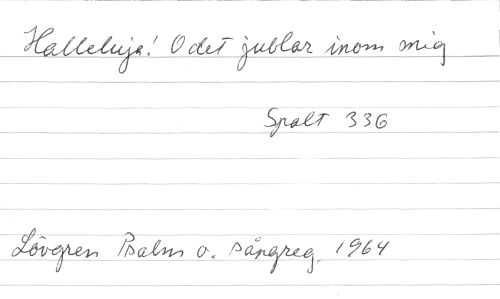 Halleluja! O det jublar inom mig
Spalt 336
Lövgren Psalm o. sångreg. 1964